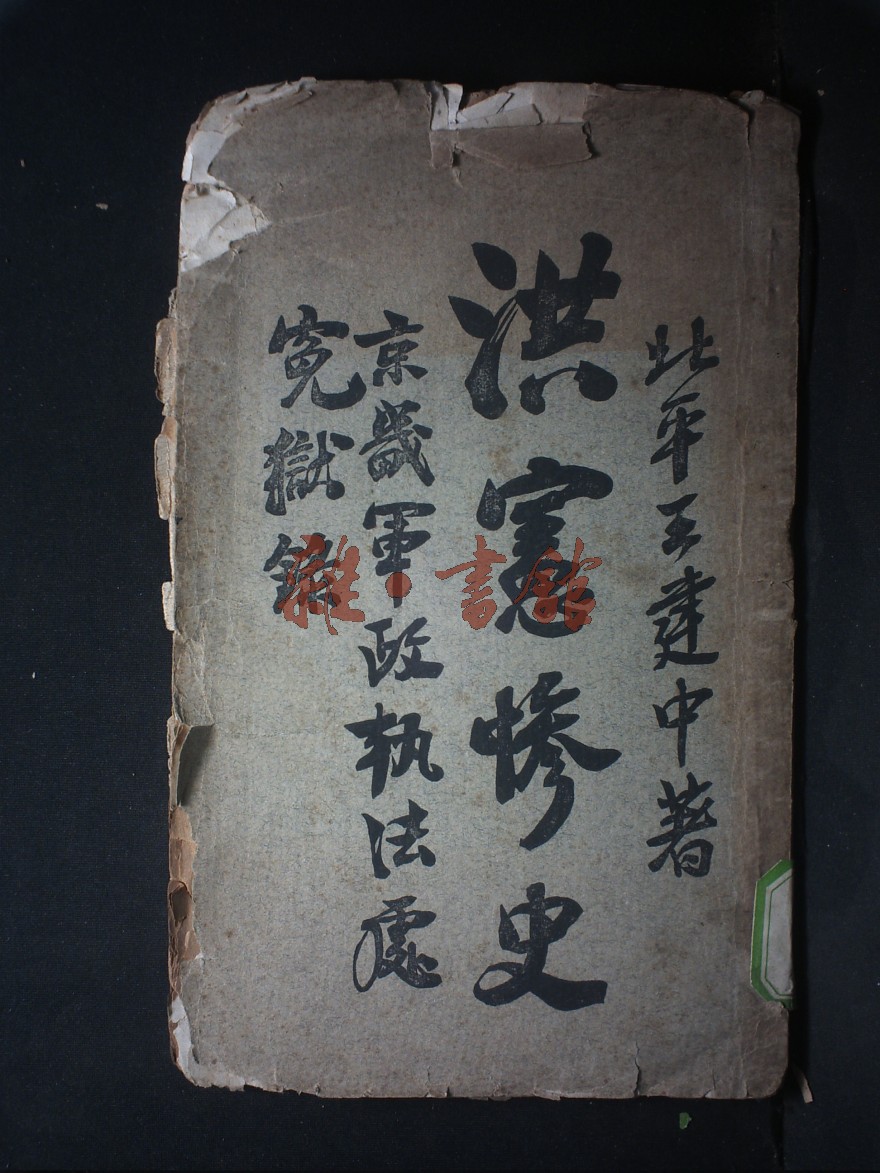 北平王建中著
洪憲惨史
京畿軍政执法處
冤獄錄
雜·書館